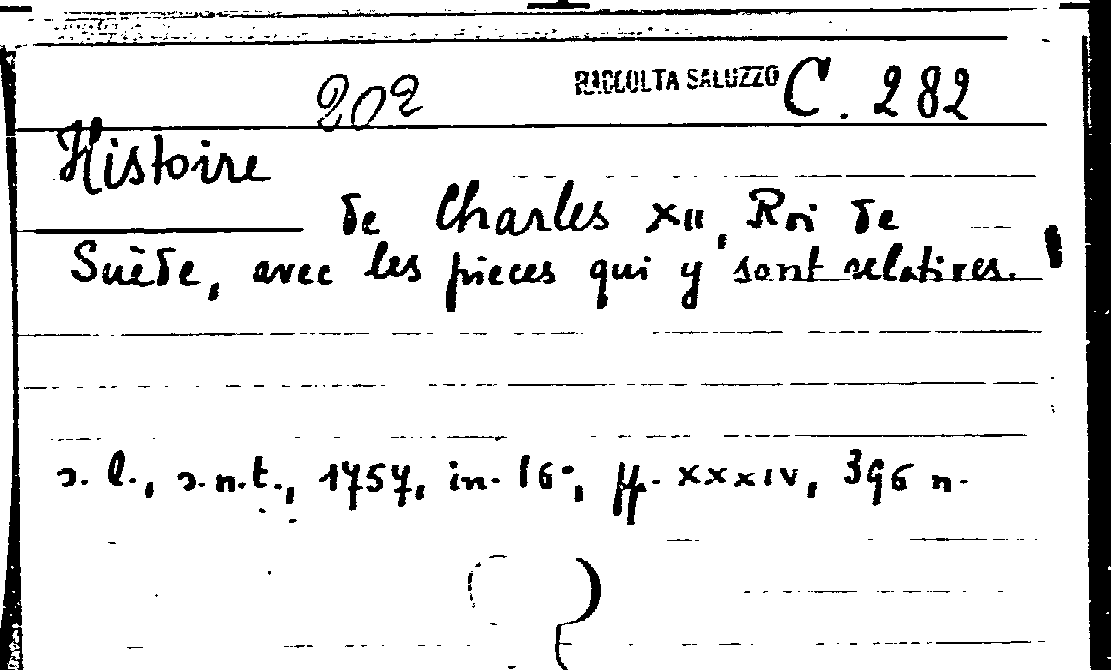 202 RACCOLTA SALUZZO C. 282
Histoire
de Charles XII, Roi de
Suède, avec les pieces qui y sont relatives.
s. l., s.n.t., 1757, in-16°, pp. XXXIV, 396 n.